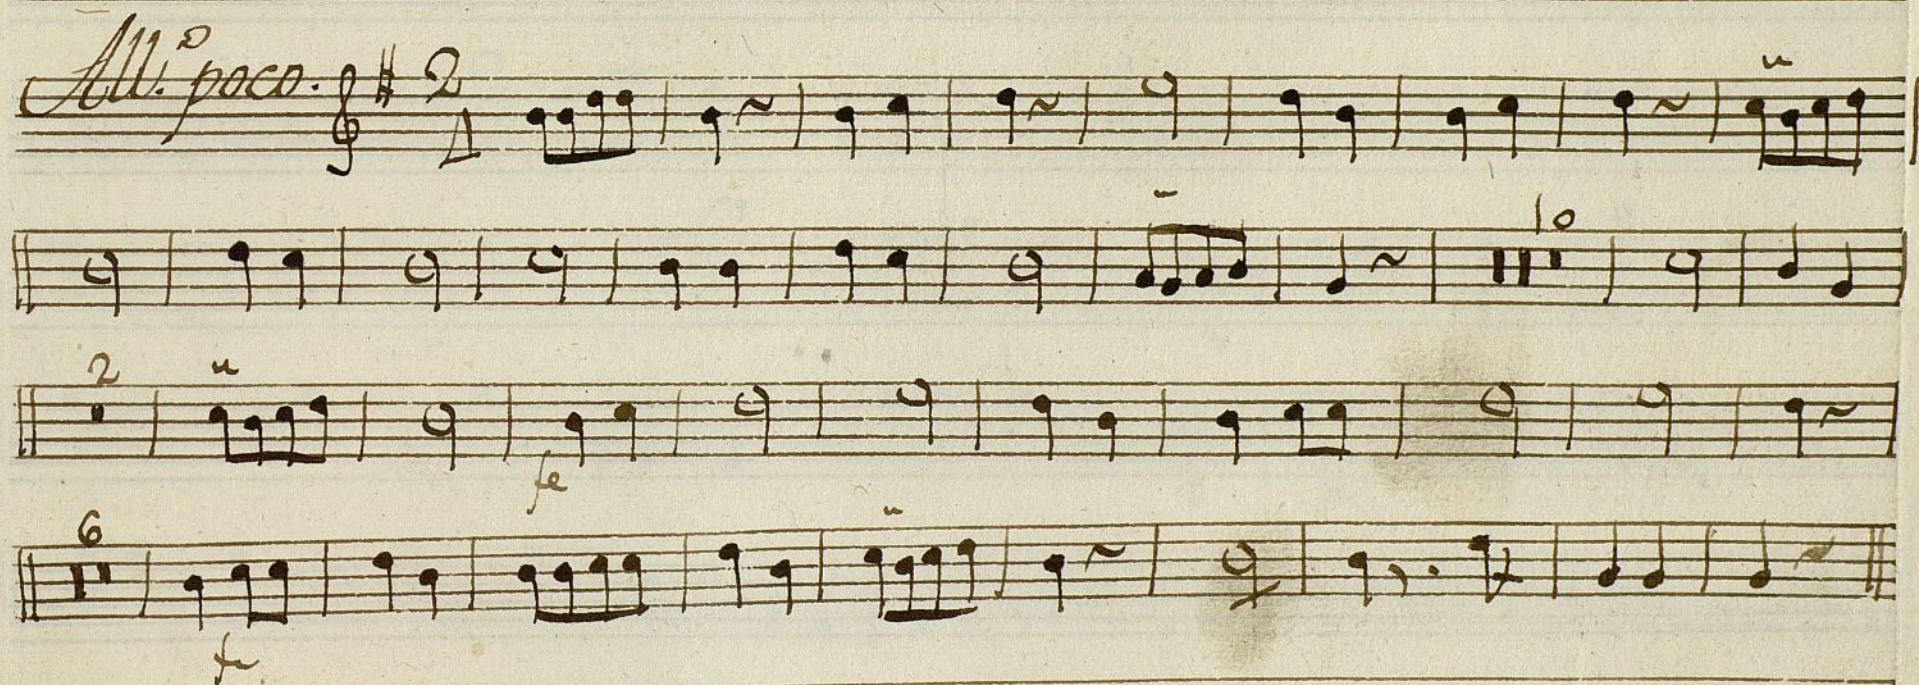 All.º poco. 2
4
10
2
fe
6
fe